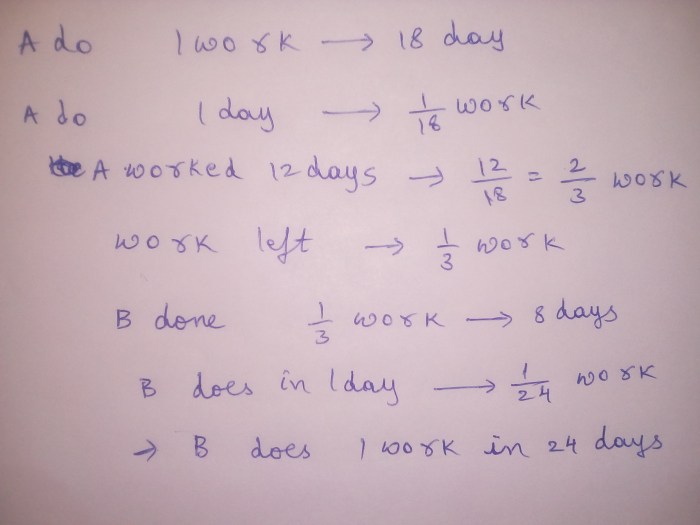 A do 1 work → 18 day
A do 1 day → 1/18 work
A worked 12 days → 12/18 = 2/3 work
work left → 1/3 work
B done 1/3 work → 8 days
B does in 1 day → 1/24 work
→ B does 1 work in 24 days